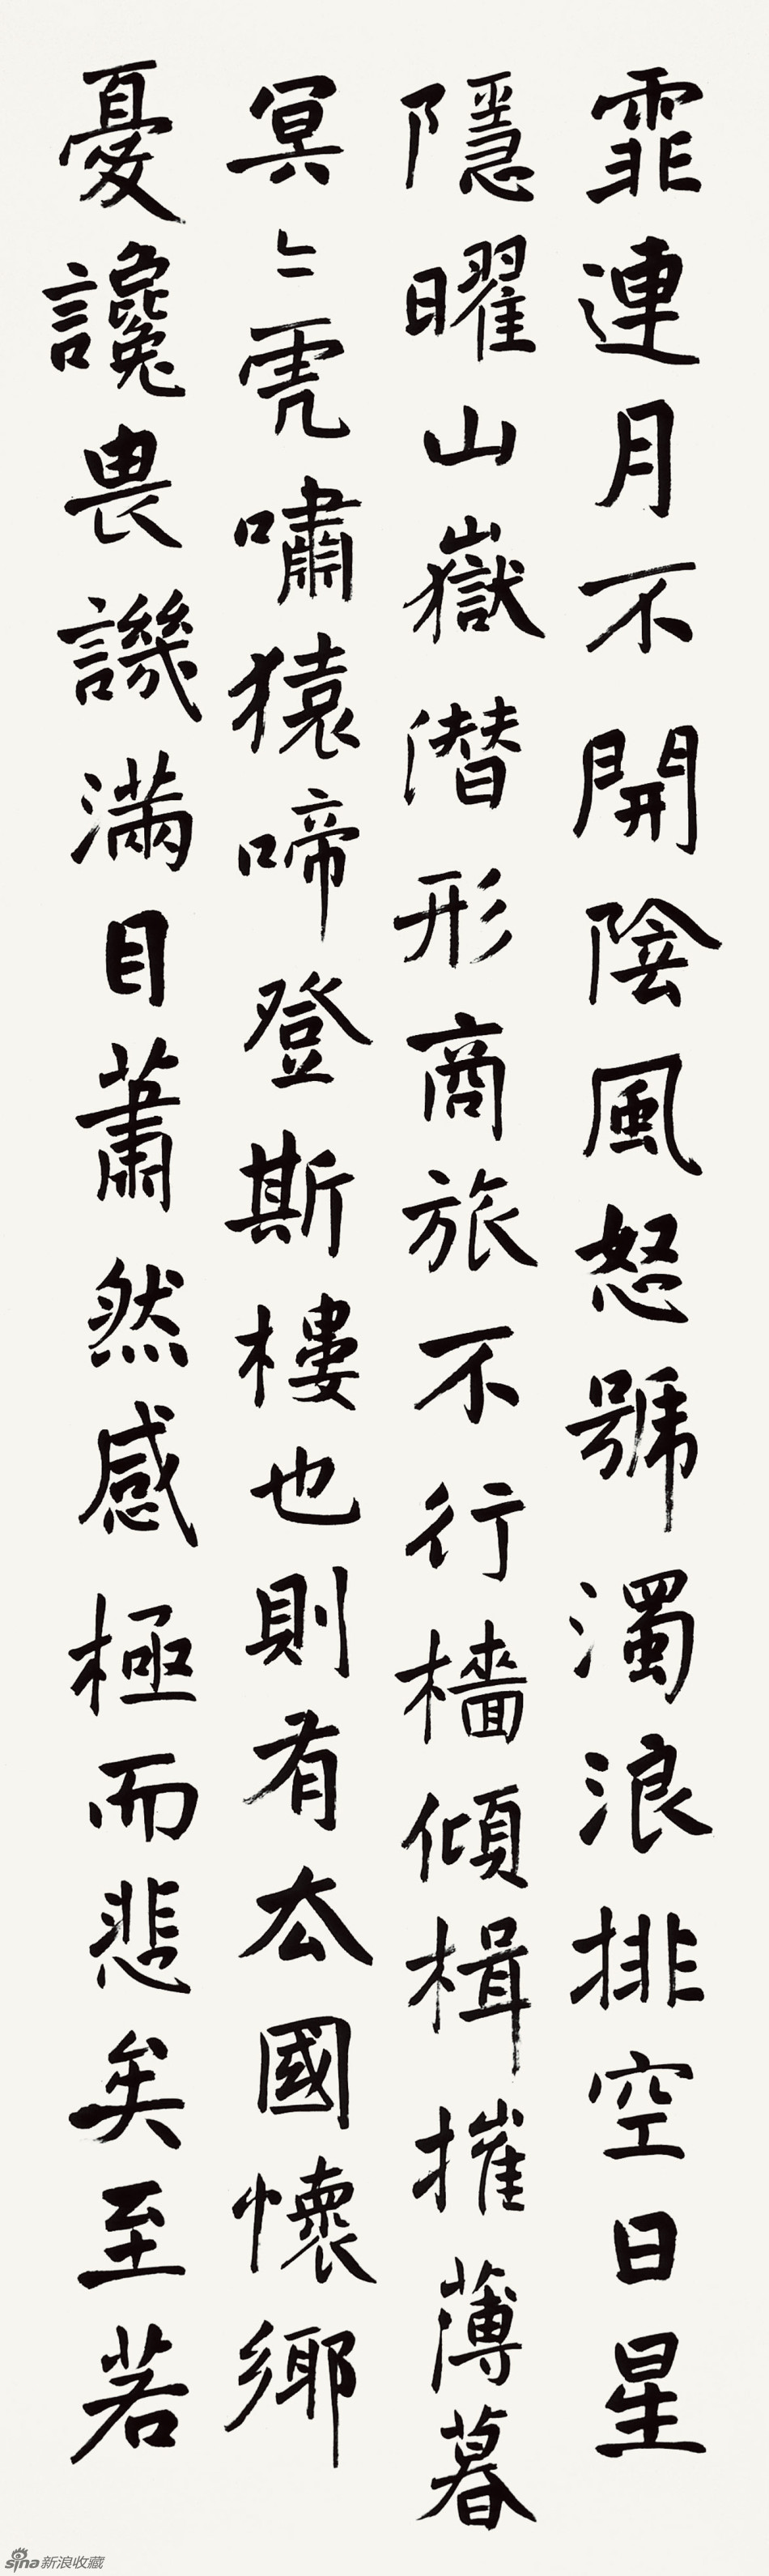 霏連月不開陰風怒號濁浪排空日星
隱曜山嶽潛形商旅不行檣傾楫摧薄暮
冥〻虎嘯猿啼登斯樓也則有去國懷鄉
憂讒畏譏滿目蕭然感極而悲矣至若
sina新浪收藏